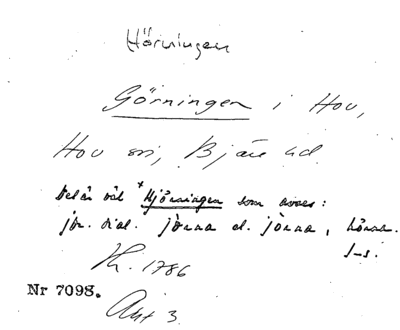 Hörningen
Görningen i Hov,
Hov sn, Bjäre hd.
Det är väl *Hjörningen som avses:
jfr. dial. jörna el. jörna, hörna.
J-s.
Kt. 1786
Nr 7098.
Akt 3